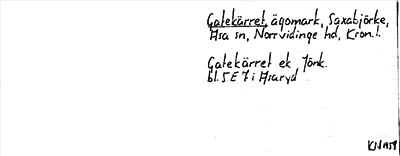 Gatekärret, ägomark, Saxabjörke,
Asa sn, Norrvidinge hd, Kron. l.
Gatekärret ek Jönk.
bl. 5E7i Asaryd